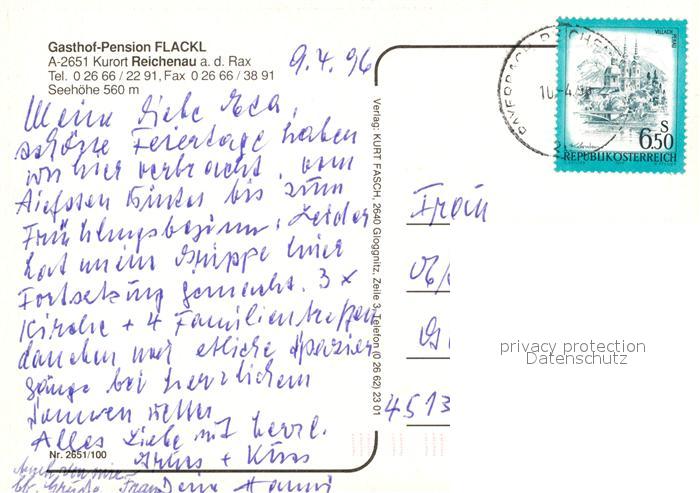 Gasthof-Pension FLACKL
A-2651 Kurort Reichenau a. d. Rax
Tel. 0 26 66 / 22 91, Fax 0 26 66 / 38 91
Seehöhe 560 m
9.4.96
Meine liebe Eda,
schöne Feiertage haben
wir hier verbracht, vom
tiefsten Winter bis zum
Frühlingsbeginn. Leider
hat mein Grippe hier
Fortsetzung gemacht. 3 x
Kirche + 4 Familientreffen
daneben und etliche Spazier
gänge bei herrlichem
Sonnen wetter
Alles Liebe mit herzl.
+ Kuss
Deine Hanni
Nr. 2651/100
Auch von mir
lb. Grüße
Verlag: KURT FASCH, 2640 Gloggnitz, Zeile 3, Telefon (0 26 62) 23 01
PAYERBACH-REICHEN
10.-4.96
VILLACH PERAU
S
6.50
REPUBLIK ÖSTERREICH
Frau
4513
privacy protection
Datenschutz